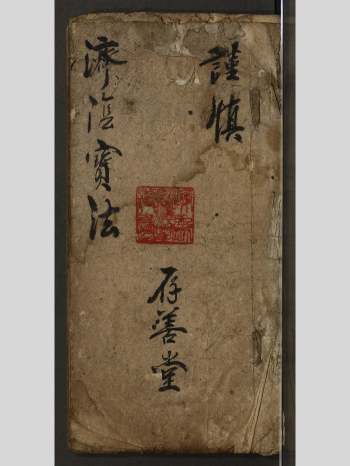 謹慎
存善堂
濟陰寶法